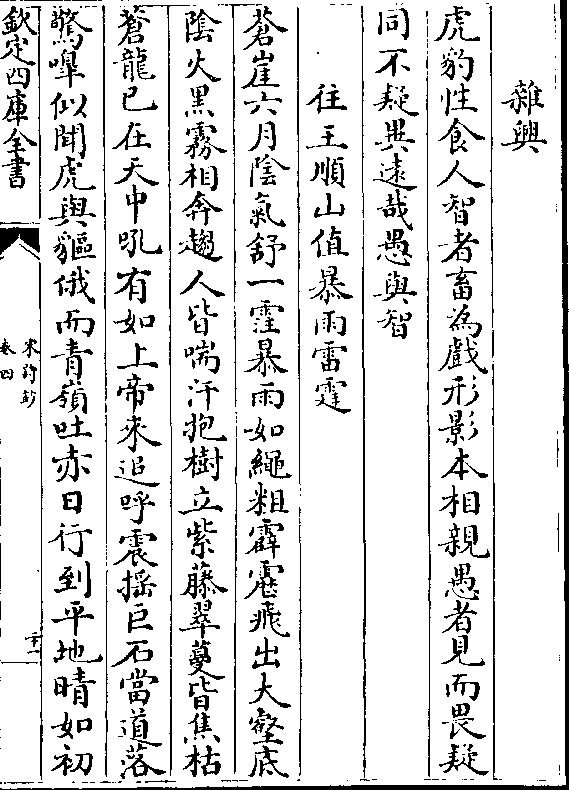 雜興
虎豹性食人智者畜為戲形影本相親愚者見而畏疑
同不疑異遠哉愚與智
往王順山值暴雨雷霆
蒼崖六月陰氣舒一霔暴雨如繩粗霹靂飛出大壑底
陰火黑霧相奔趨人皆喘汗抱樹立紫藤翠蔓皆焦枯
蒼龍已在天中吼有如上帝來追呼震搖巨石當道落
驚嘷似聞虎與貙俄而青嶺吐赤日行到平地晴如初
欽定四庫全書
宋詩鈔
卷四